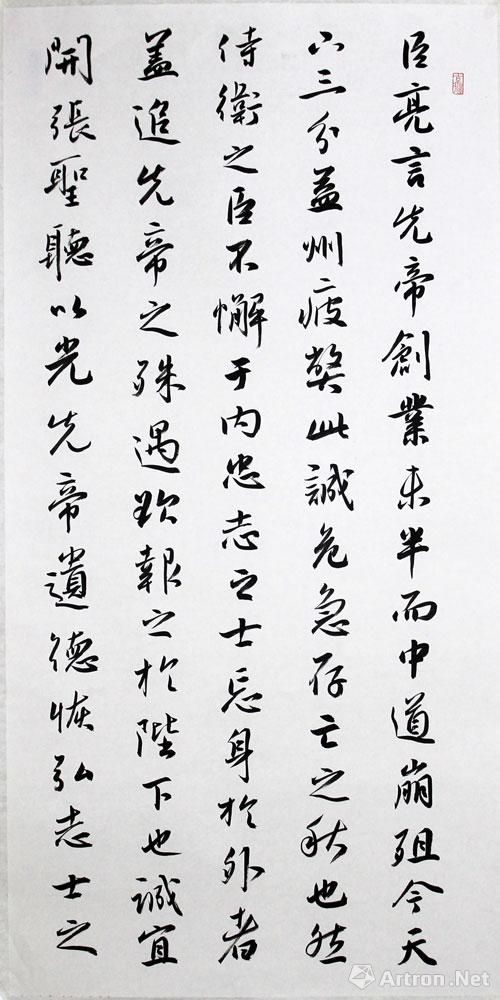 臣亮言先帝創業未半而中道崩殂今天
下三分益州疲弊此誠危急存亡之秋也然
侍衛之臣不懈于內忠志之士忘身於外者
蓋追先帝之殊遇欲報之於陛下也誠宜
開張聖聽以光先帝遺德恢弘志士之
Artron.Net